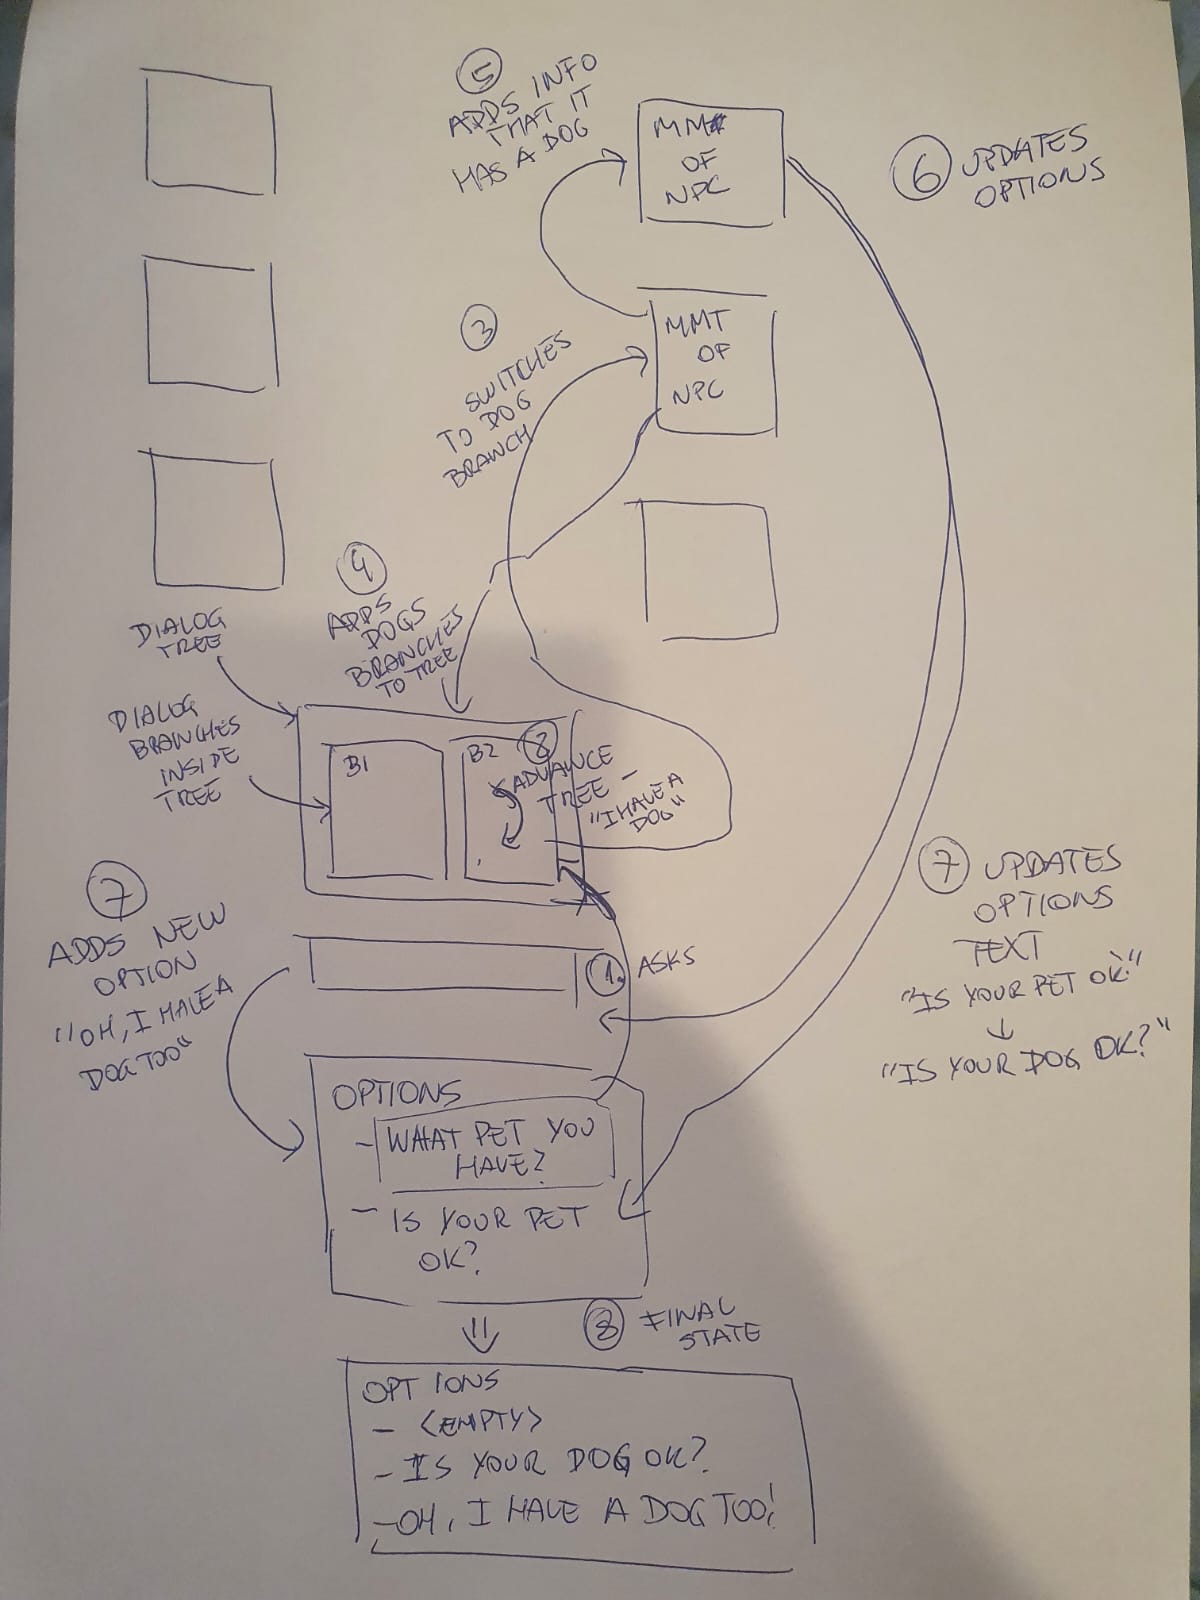 5
ADDS INFO
THAT IT
HAS A DOG
OF
NPC
6 UPDATES
OPTIONS
3
SWITCHES
TO DOG
BRANCH
MMT
OF
NPC
4
ADDS
DOGS
BRANCHES
TO TREE
DIALOG
TREE
DIALOG
BRANCHES
INSIDE
TREE
B1
B2
2
ADVANCE
TREE -
"I HAVE A
DOG"
7
ADDS NEW
OPTION
"OH, I HAVE A
DOG TOO"
1. ASKS
7 UPDATES
OPTIONS
TEXT
"IS YOUR PET OK?"
"IS YOUR DOG OK?"
OPTIONS
- WHAT PET YOU
HAVE?
- IS YOUR PET
OK?
8 FINAL
STATE
OPTIONS
- <EMPTY>
- IS YOUR DOG OK?
- OH, I HAVE A DOG TOO!